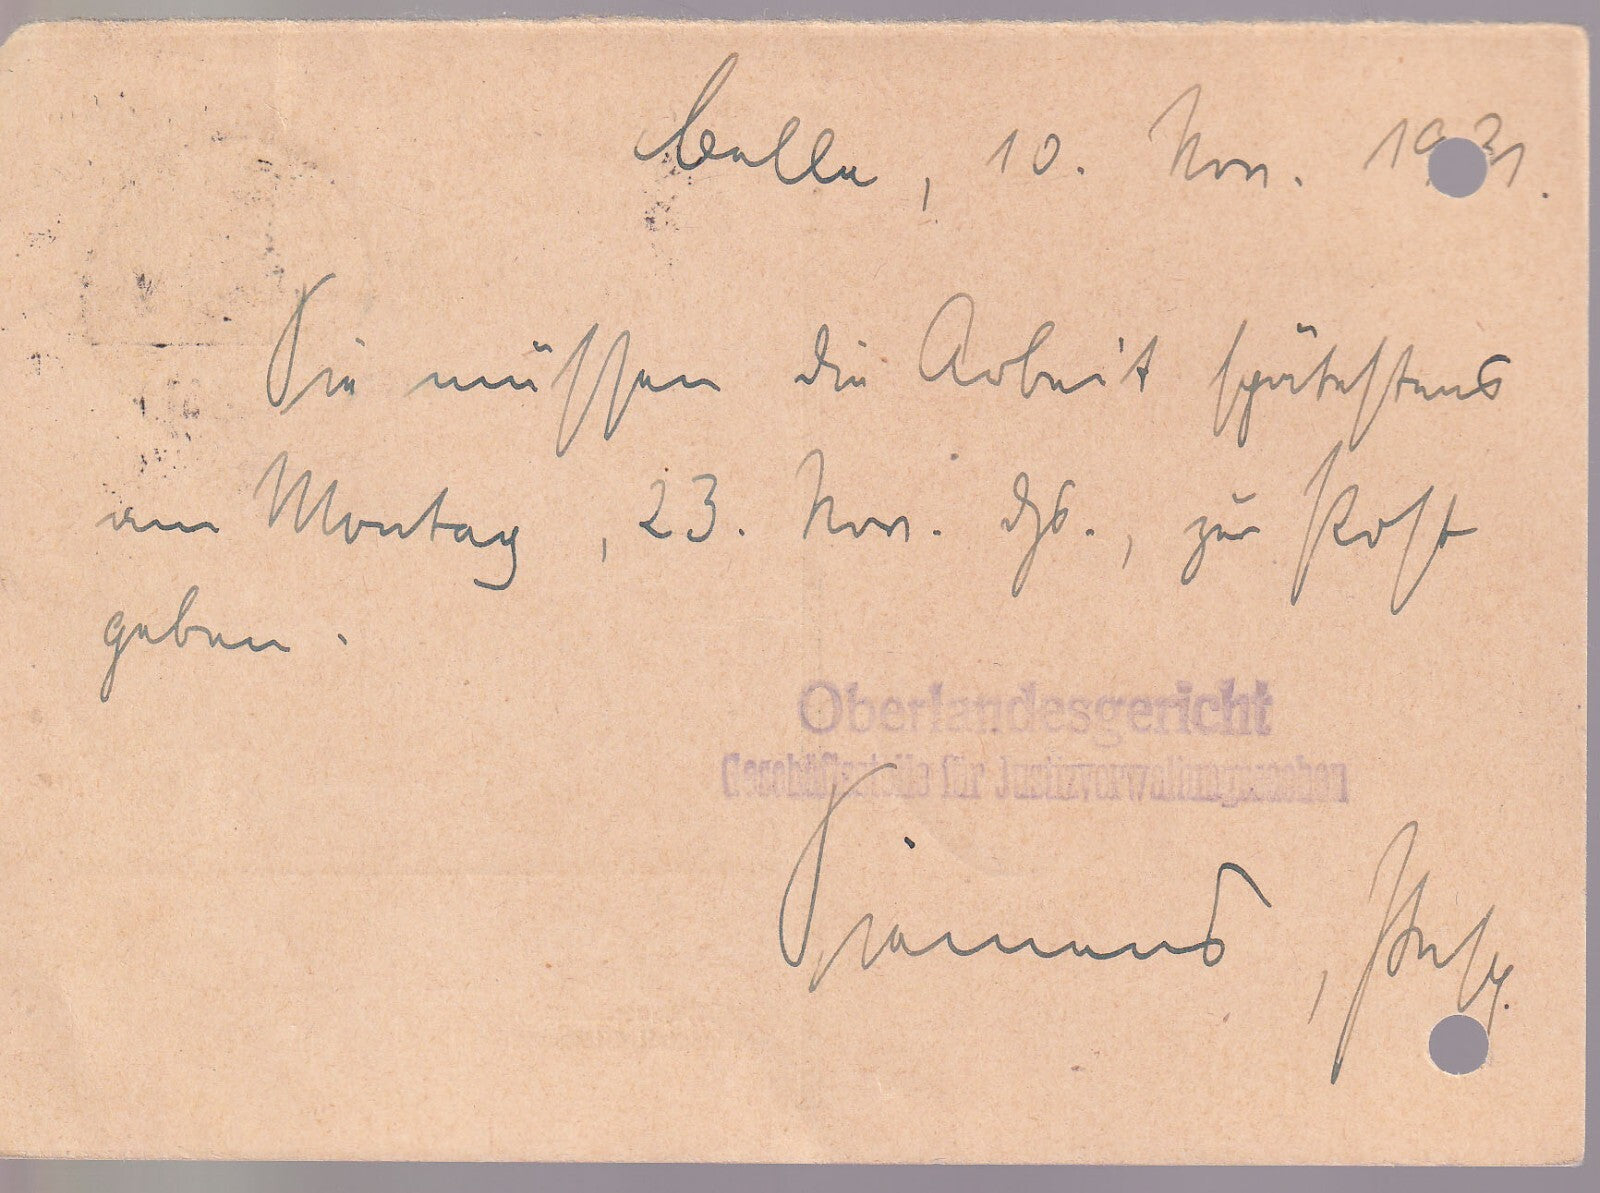 Celle, 10. Nov. 1931.
Sie müssen die Arbeit spätestens
am Montag, 23. Nov. djs., zur Post
geben.
Oberlandesgericht
Geschäftsstelle für Justizverwaltungssachen